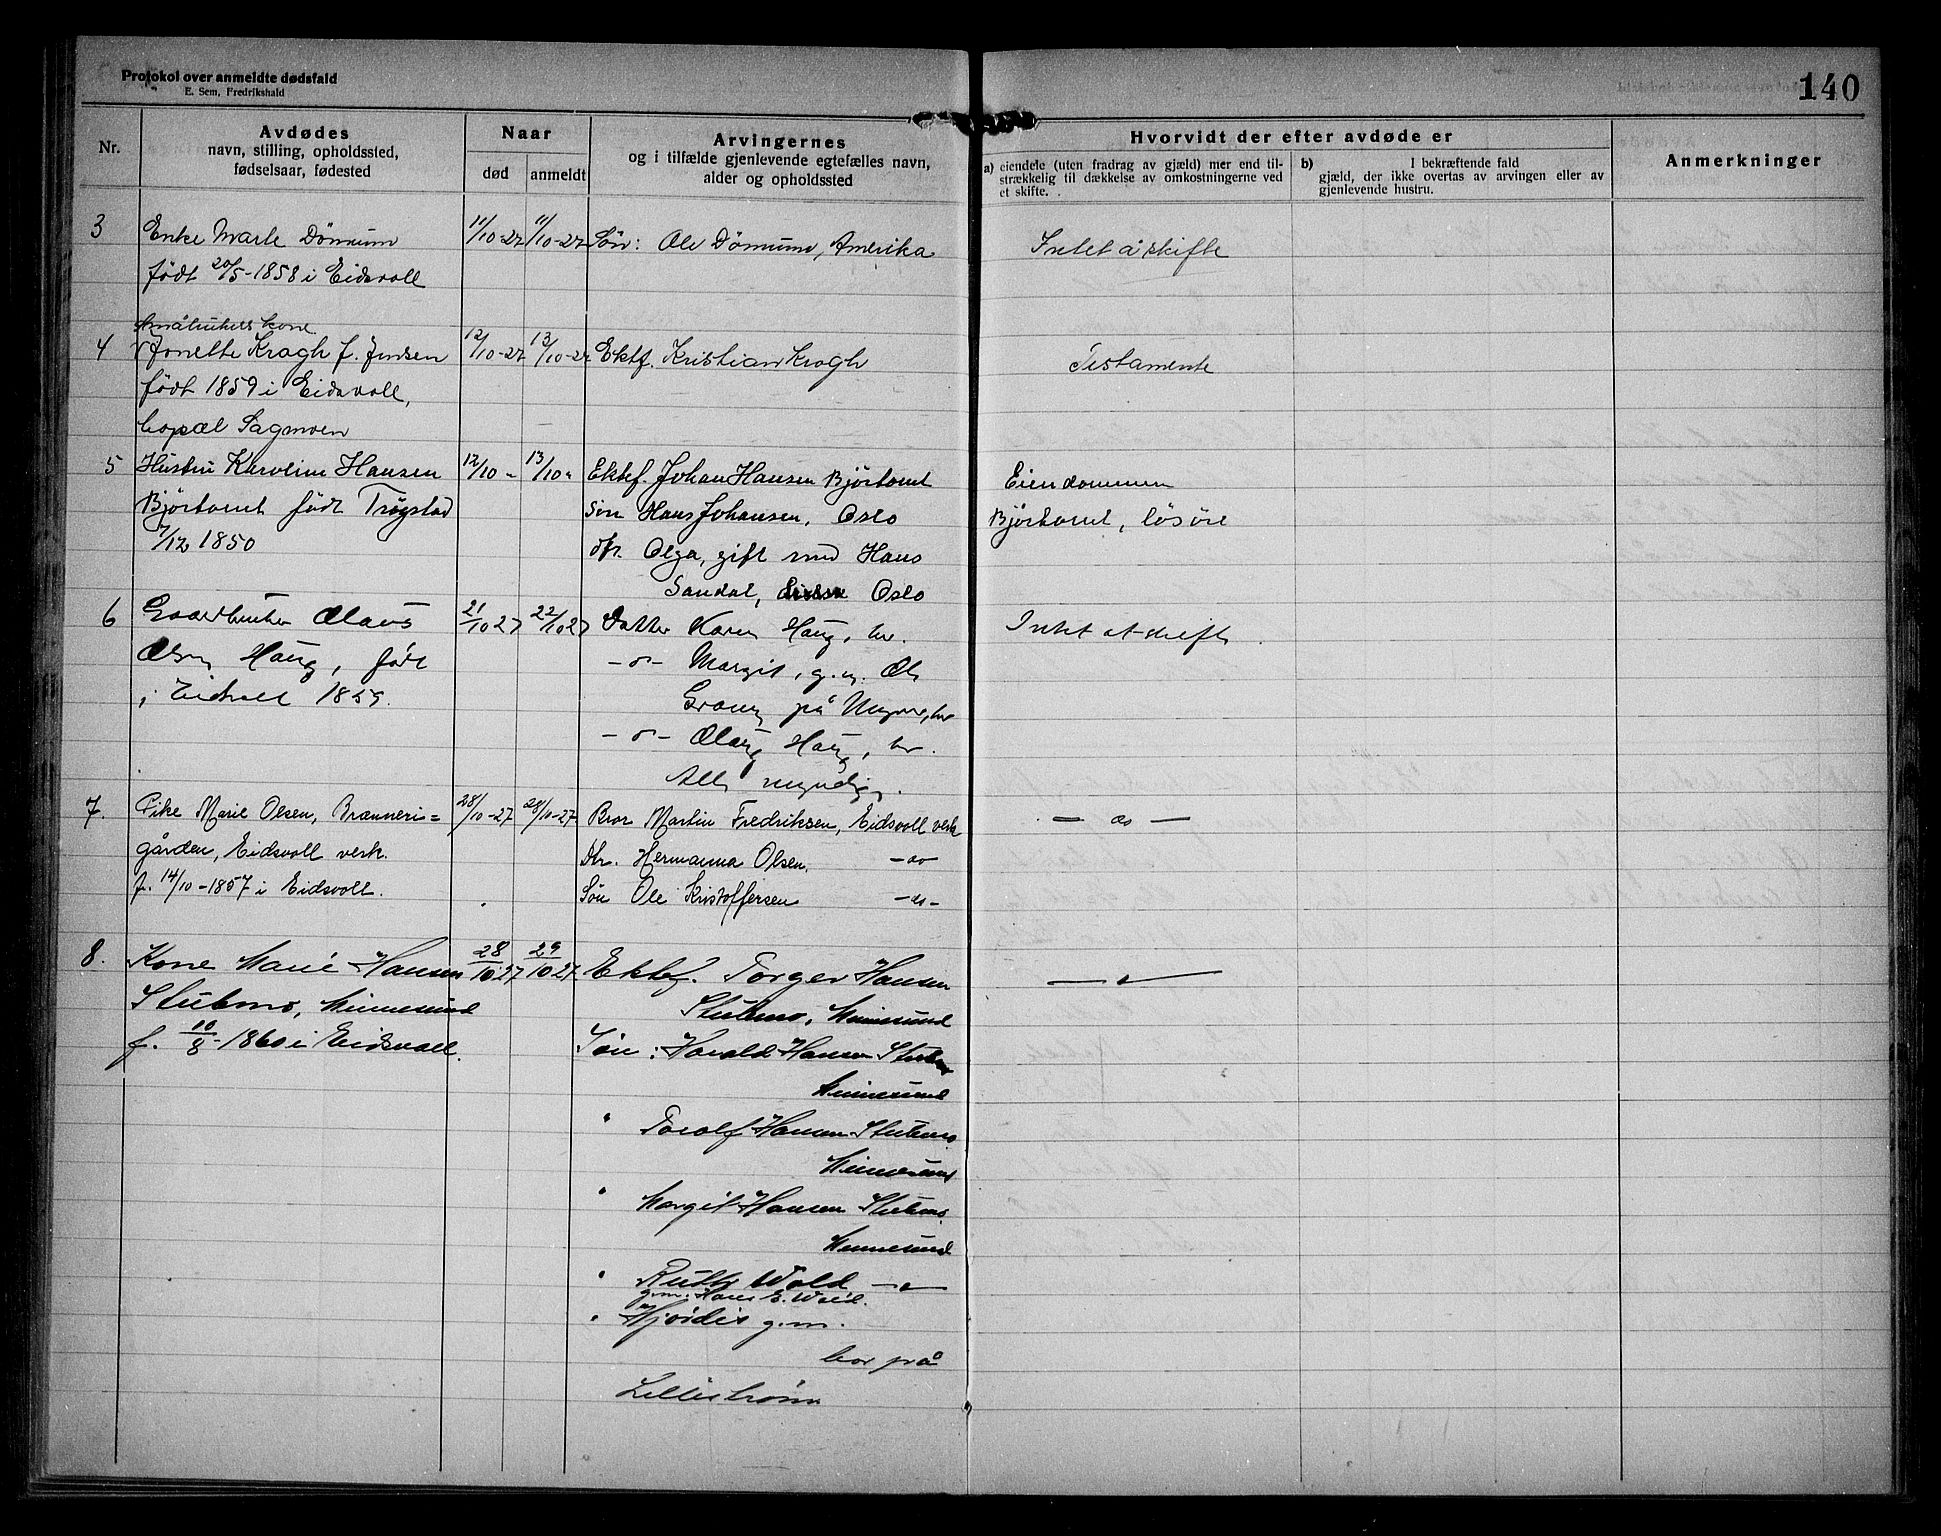 Protokol over anmeldte dødsfald
E. Sem, Fredrikshald
140
Nr.
Avdødes
navn, stilling, opholdssted,
fødselsaar, fødested
Naar
død
anmeldt
Arvingernes
og i tilfælde gjenlevende egtefælles navn,
alder og opholdssted
Hvorvidt der efter avdøde er
a) eiendele (uten fradrag av gjæld) mer end til-
strækkelig til dækkelse av omkostningerne ved
et skifte.
b) I bekræftende fald
gjæld, der ikke overtas av arvingen eller av
gjenlevende hustru.
Anmerkninger
3 Enke Marte Dømum 11/10-27 11/10-27 Søn: Ole Dømum, Amerika Intet å skifte
født 20/5-1858 i Eidsvoll
Småbrukers kone
4 Jonette Kragh f. Jensen 12/10-27 13/10-27 Ektf. Kristian Kragh Testamente
født 1859 i Eidsvoll,
bopæl Sagmoen
5 Hustru Karoline Hansen 12/10 - 13/10 - Ektef. Johan Hansen Bjørtomt Eiendommen
Bjørtomt født Trøgstad Søn Hans Johansen, Oslo Bjørtomt, løsøre
7/12 1850 dtr. Olga, gift med Hans
Sandal, Oslo
6 Gaardbruker Olaus 21/10 27 22/10 27 Datter Karen Haug, her. Intet at skifte.
Olsen Haug, født -o- Margit, g.m. Ole
i Eidsvoll 1859. på
-o- Olaug Haug, her.
Alle myndige.
7. Pike Marie Olsen, Brænneri= 28/10-27 28/10-27 Bror Martin Fredriksen, Eidsvoll verk — do —
gården, Eidsvoll verk. Dtr. Hermanna Olsen. - do
f. 14/10-1857 i Eidsvoll. Søn Ole Kristoffersen - do -
8. Kone Marie Hansen 28/10 27 29/10 27. Ektef. Torger Hansen — " —
Stubmo, Minnesund Stubmo, Minnesund
f. 10/8-1860 i Eidsvoll. Søn: Harald Hansen Stubmo
Minnesund
" Toralf Hansen Stubmo
Minnesund
" Margit Hansen Stubmo
Minnesund
" Ruth Wold — " —
g.m. Hans E. Wold.
" Hjørdis g.m.
bor på
Lillestrøm